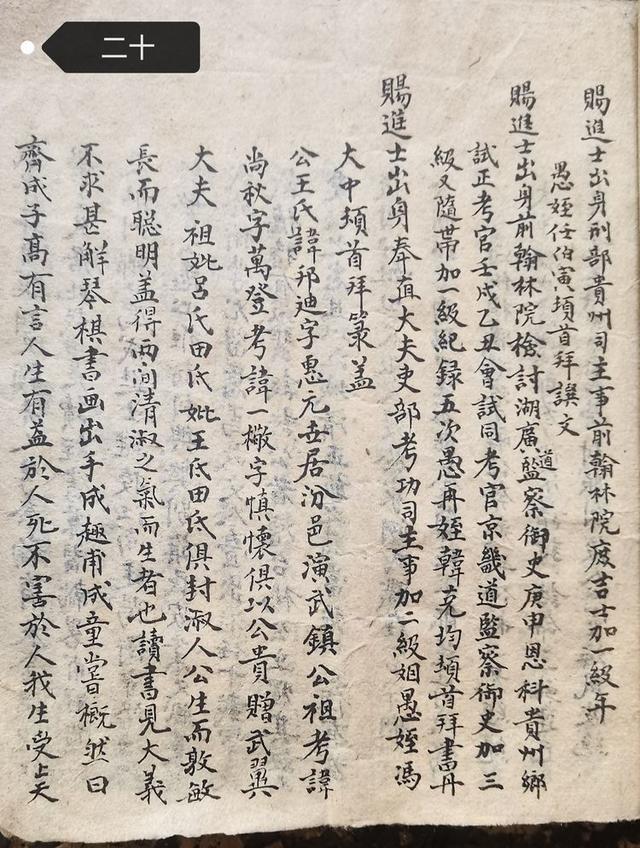 二十
賜進士出身刑部貴州司主事前翰林院庶吉士加一級年
愚姪任伯寅頓首拜譔文
賜進士出身前翰林院檢討湖廣道監察御史庚申恩科貴州鄉
試正考官壬戌乙丑會試同考官京畿道監察御史加三
級又隨帶加一級紀録五次愚再姪韓克均頓首拜書丹
賜進士出身奉直大夫吏部考功司主事加二級姻愚姪馮
大中頓首拜篆盖
公王氏諱邦迪字惠元世居汾邑演武鎮公祖考諱
尚秋字萬登考諱一橄字慎懷俱以公貴贈武翼
大夫祖妣呂氏田氏妣王氏田氏俱封淑人公生而敦敏
長而聰明盖得兩间清淑之氣而生者也讀書見大義
不求甚解琴棋書画出手成趣甫成童嘗概然曰
齊成子高有言人生有益於人死不害於人我生受上天